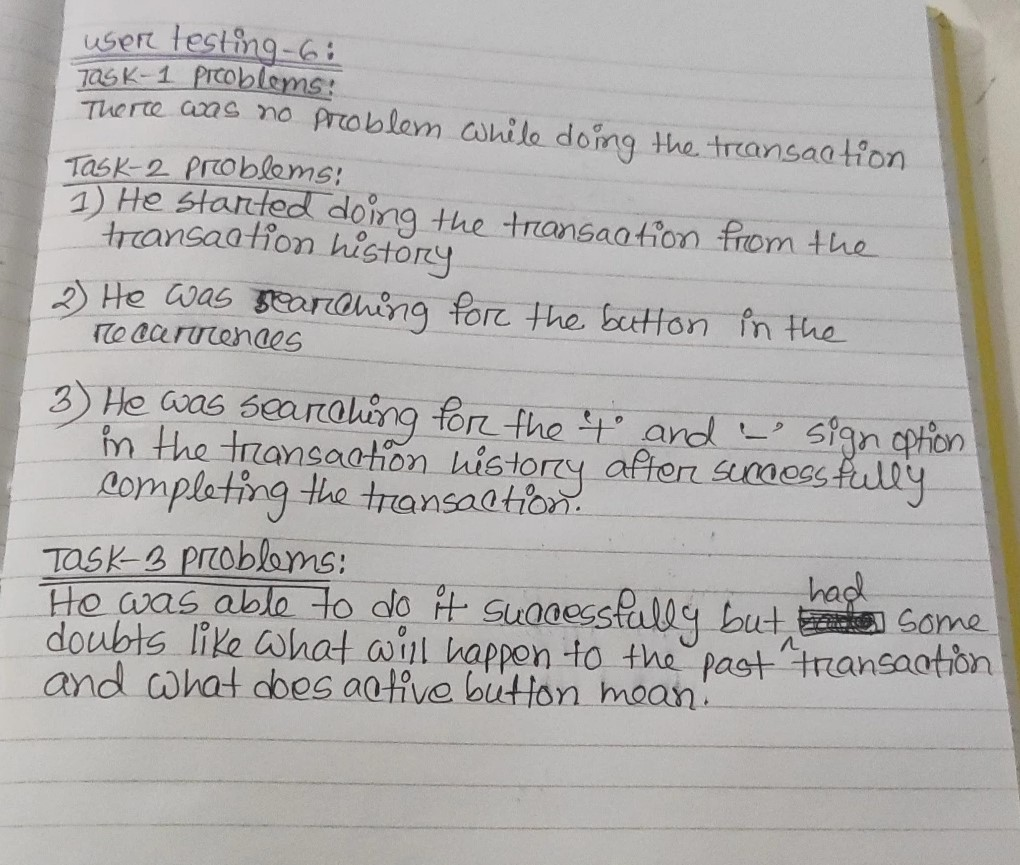 user testing-6:
Task-1 problems:
There was no problem while doing the transaction
Task-2 problems:
1) He started doing the transaction from the
transaction history
2) He was searching for the button in the
recurrences
3) He was searching for the '+' and '-' sign option
in the transaction history after successfully
completing the transaction.
Task-3 problems:
He was able to do it successfully but had some
doubts like what will happen to the past transaction
and what does active button mean.